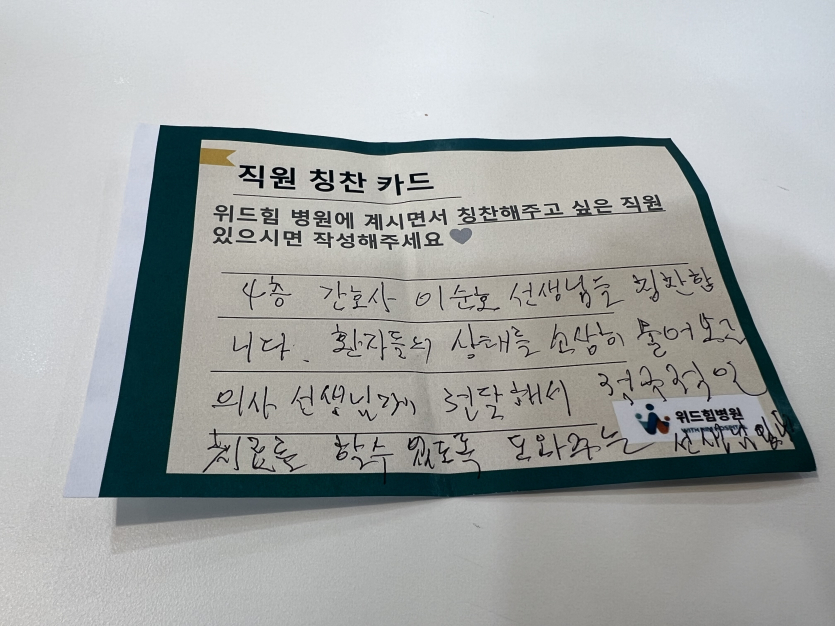 직원 칭찬 카드
위드힘 병원에 계시면서 칭찬해주고 싶은 직원
있으시면 작성해주세요
4층 간호사 이순호 선생님을 칭찬합
니다. 환자들의 상태를 소상히 물어보고
의사 선생님께 전달해서 적극적인
위드힘병원
WITH HIM HOSPITAL
치료를 할수 있도록 도와주는 선생님입니다